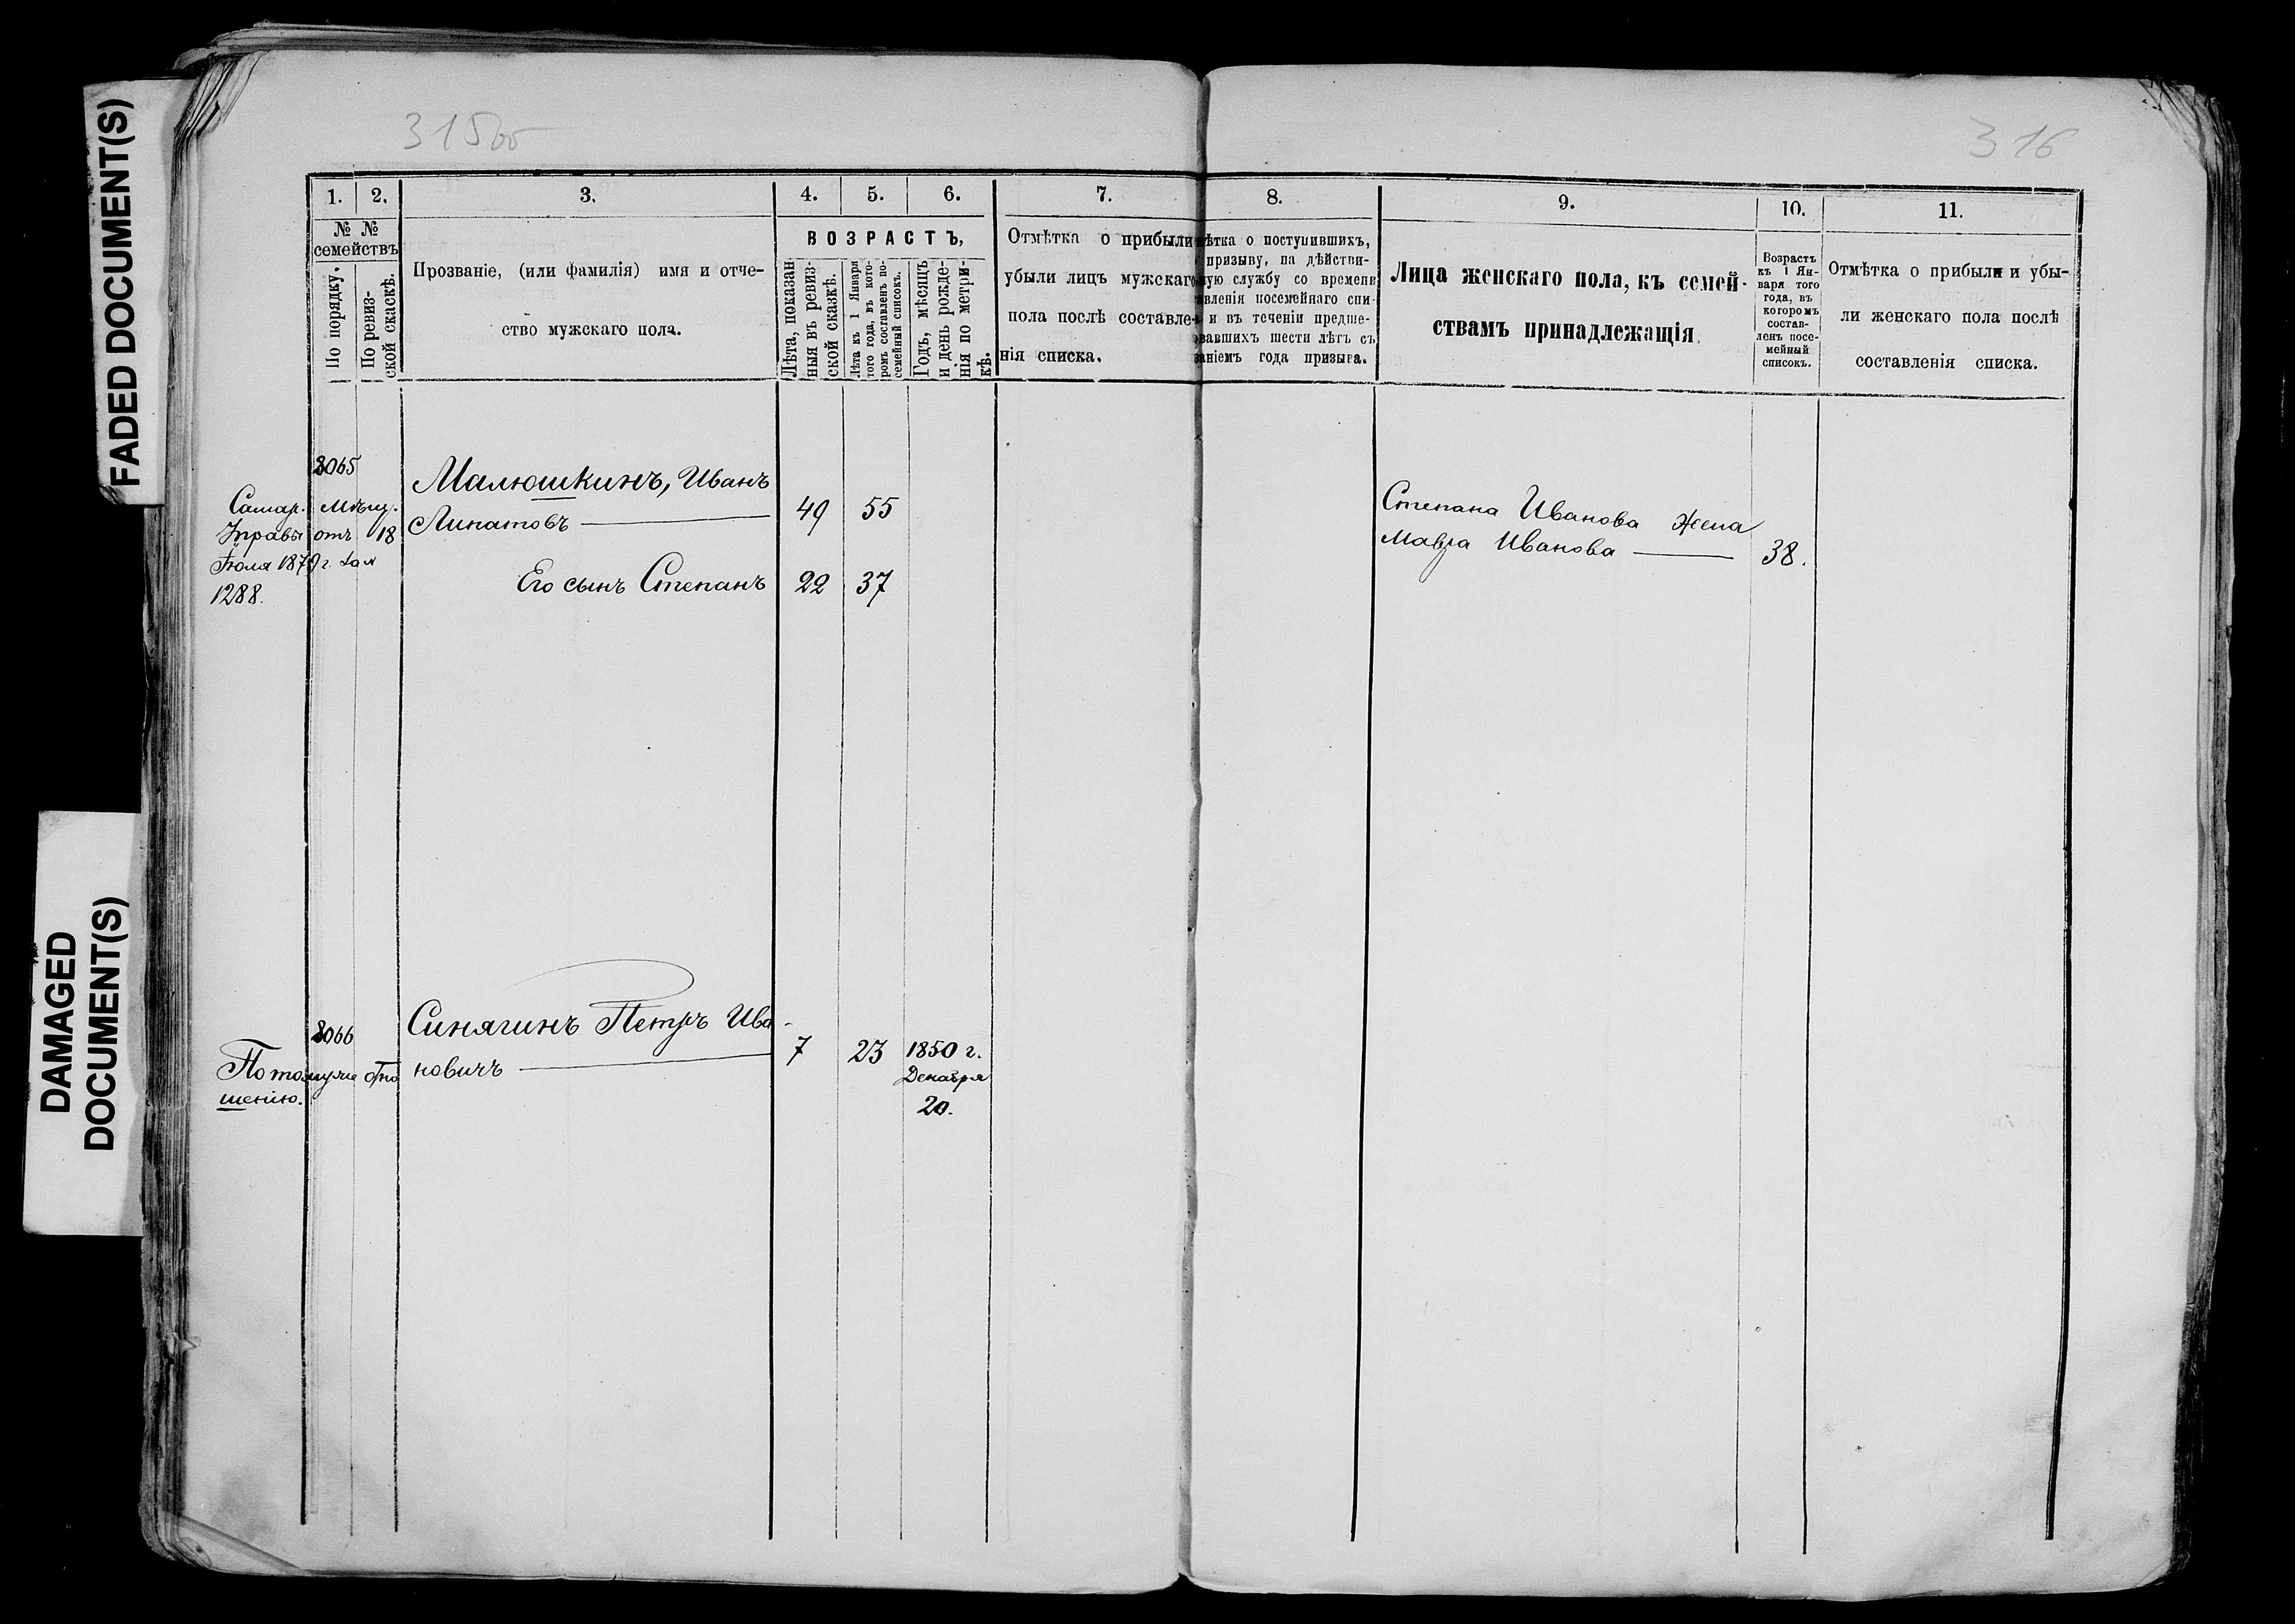 FADED DOCUMENT(S)
DAMAGED
DOCUMENT(S)
315об
316
1. 2. 3. 4. 5. 6. 7. 8. 9. 10. 11.
№ №
семействъ
По порядку.
По ревиз-
ской сказкѣ.
Прозваніе, (или фамилія) имя и отче-
ство мужскаго пола.
ВОЗРАСТЪ,
Лѣта, показан
ныя въ ревиз-
ской сказкѣ.
Лѣта къ 1 Января
того года, въ кото-
ромъ составленъ по-
семейный списокъ.
Годъ, мѣсяцъ
и день рожде-
нія по метри-
кѣ.
Отмѣтка о прибыли
убыли лицъ мужскаго
пола послѣ составле-
нія списка.
ѣтка о поступившихъ,
призыву, на дѣйстви-
ную службу со времени
вленія посемейнаго спи-
и въ теченіи предше-
вавшихъ шести лѣтъ съ
заніемъ года призыва.
Лица женскаго пола, къ семей-
ствамъ принадлежащія.
Возрастъ
къ 1 Ян-
варя того
года, въ
которомъ
состав-
ленъ посе-
мейный
списокъ.
Отмѣтка о прибыли и убы-
ли женскаго пола послѣ
составленія списка.
8065
Самар. Мѣщ.
Управы отъ 18
Іюля 1879 г. за №
1288.
Малюшкинъ, Иванъ
Липатовъ 49 55
Его сынъ Степанъ 22 37
Степана Иванова жена
Мавра Иванова 38.
8066
По тому же отно
шенію.
Синягинъ Петръ Ива-
новичъ 7 23 1850 г.
Декабря
20.